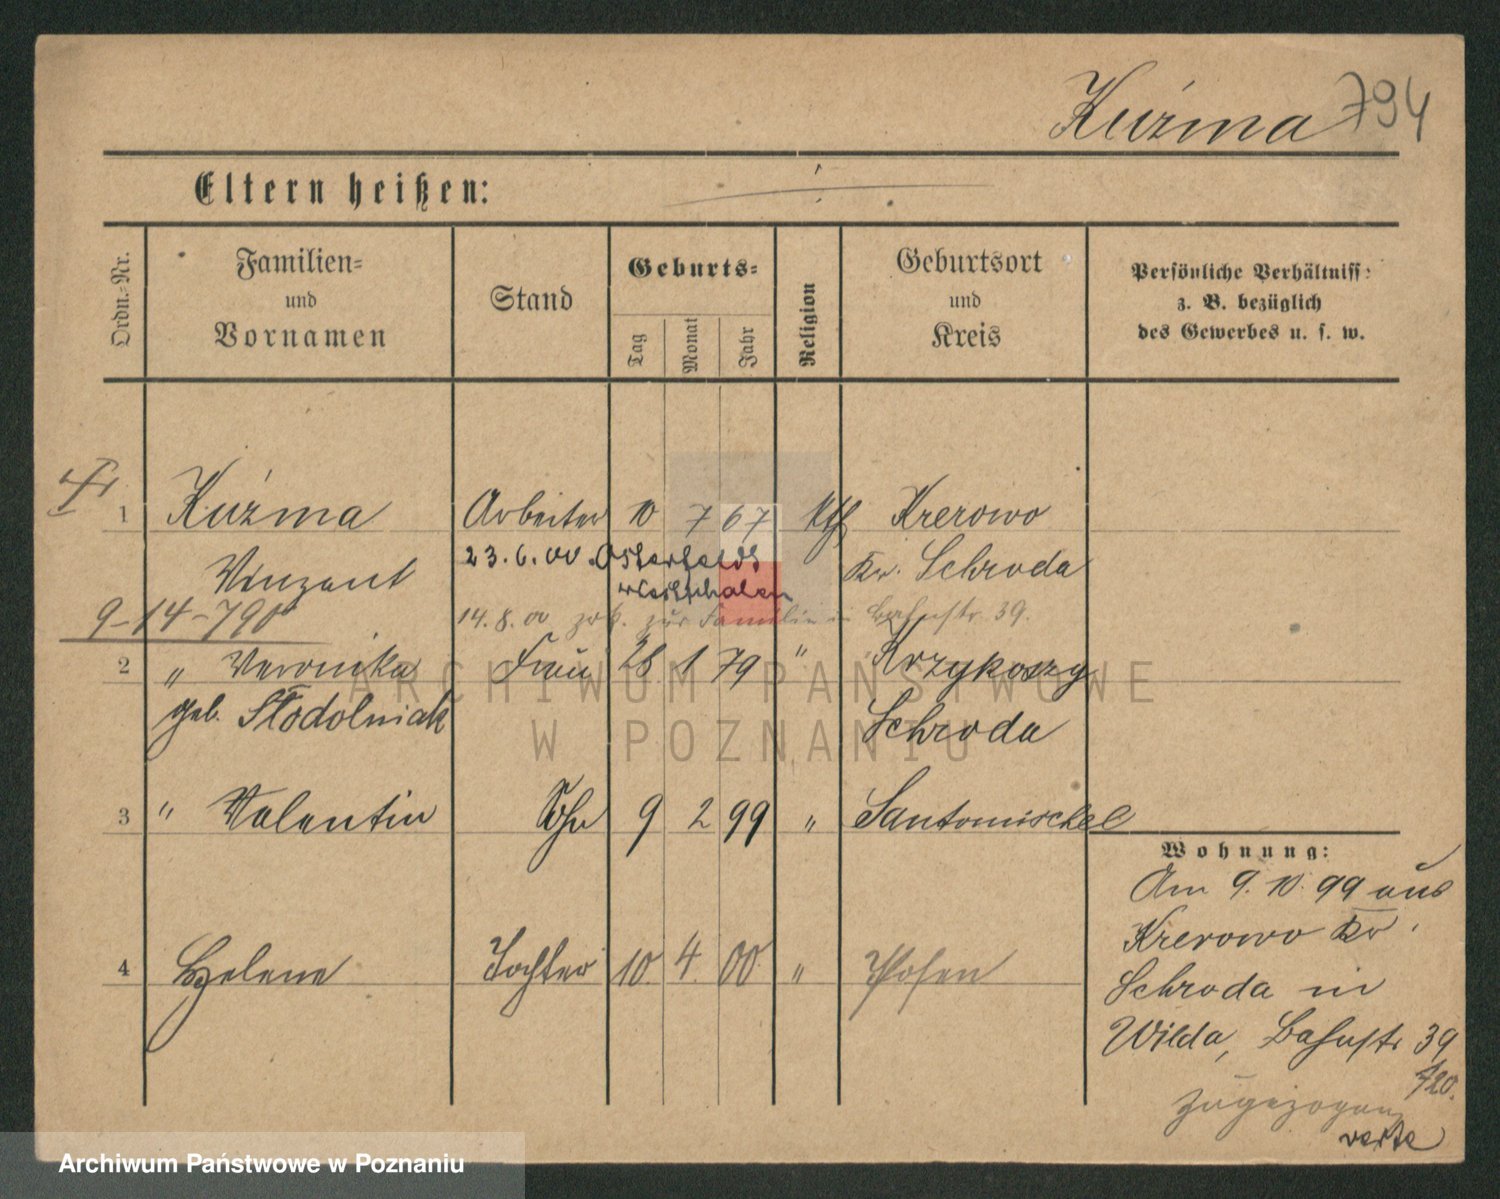 Kuźma 794
Eltern heißen:
Ordn.-Nr.
Familien-
und
Vornamen
Stand
Geburts-
Tag
Monat
Jahr
Religion
Geburtsort
und
Kreis
Persönliche Verhältniss:
z. B. bezüglich
des Gewerbes u. s. w.
1 Kuźma Arbeiter 10 7 67 kth Krerowo
Vinzent 23.6.00. Osterfeldt Kr. Schroda
Westphalen
9-14-798 14.8.00 zrk. zur Familie in Bahnstr. 39.
2 " Veronika Frau 28 1 79 " Krzykoszy
geb. Stodolniak Schroda
3 " Valentin Sohn 9 2 99 " Santomischel
4 Helene Tochter 10. 4. 00 " Posen
Wohnung:
Am 9.10.99 aus
Krerowo Kr.
Schroda in
Wilda, Bahnstr 39
720.
zugezogen
verte
ARCHIWUM PAŃSTWOWE
W POZNANIU
Archiwum Państwowe w Poznaniu